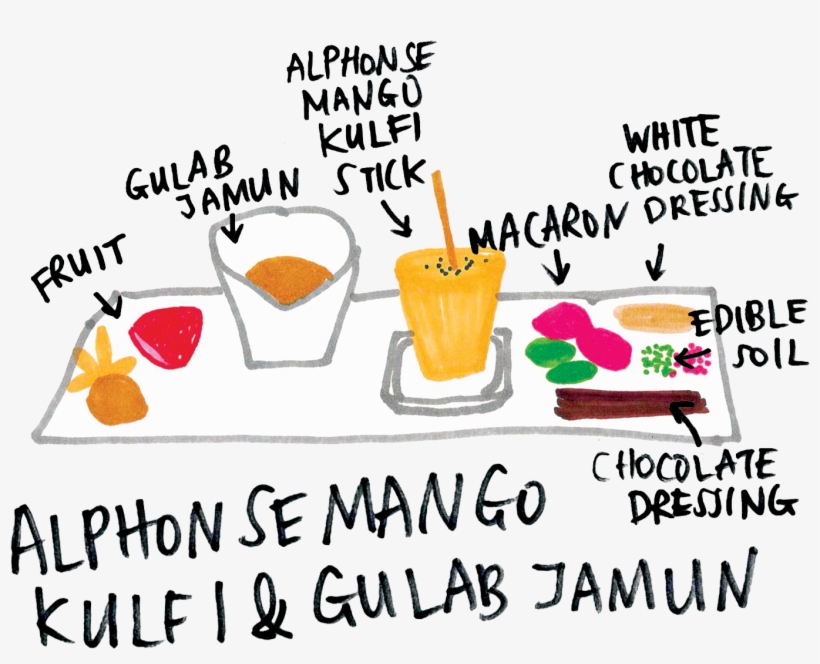 ALPHONSE
MANGO
KULFI
STICK
GULAB
JAMUN
FRUIT
MACARON
WHITE
CHOCOLATE
DRESSING
EDIBLE
SOIL
CHOCOLATE
DRESSING
ALPHONSE MANGO
KULFI & GULAB JAMUN